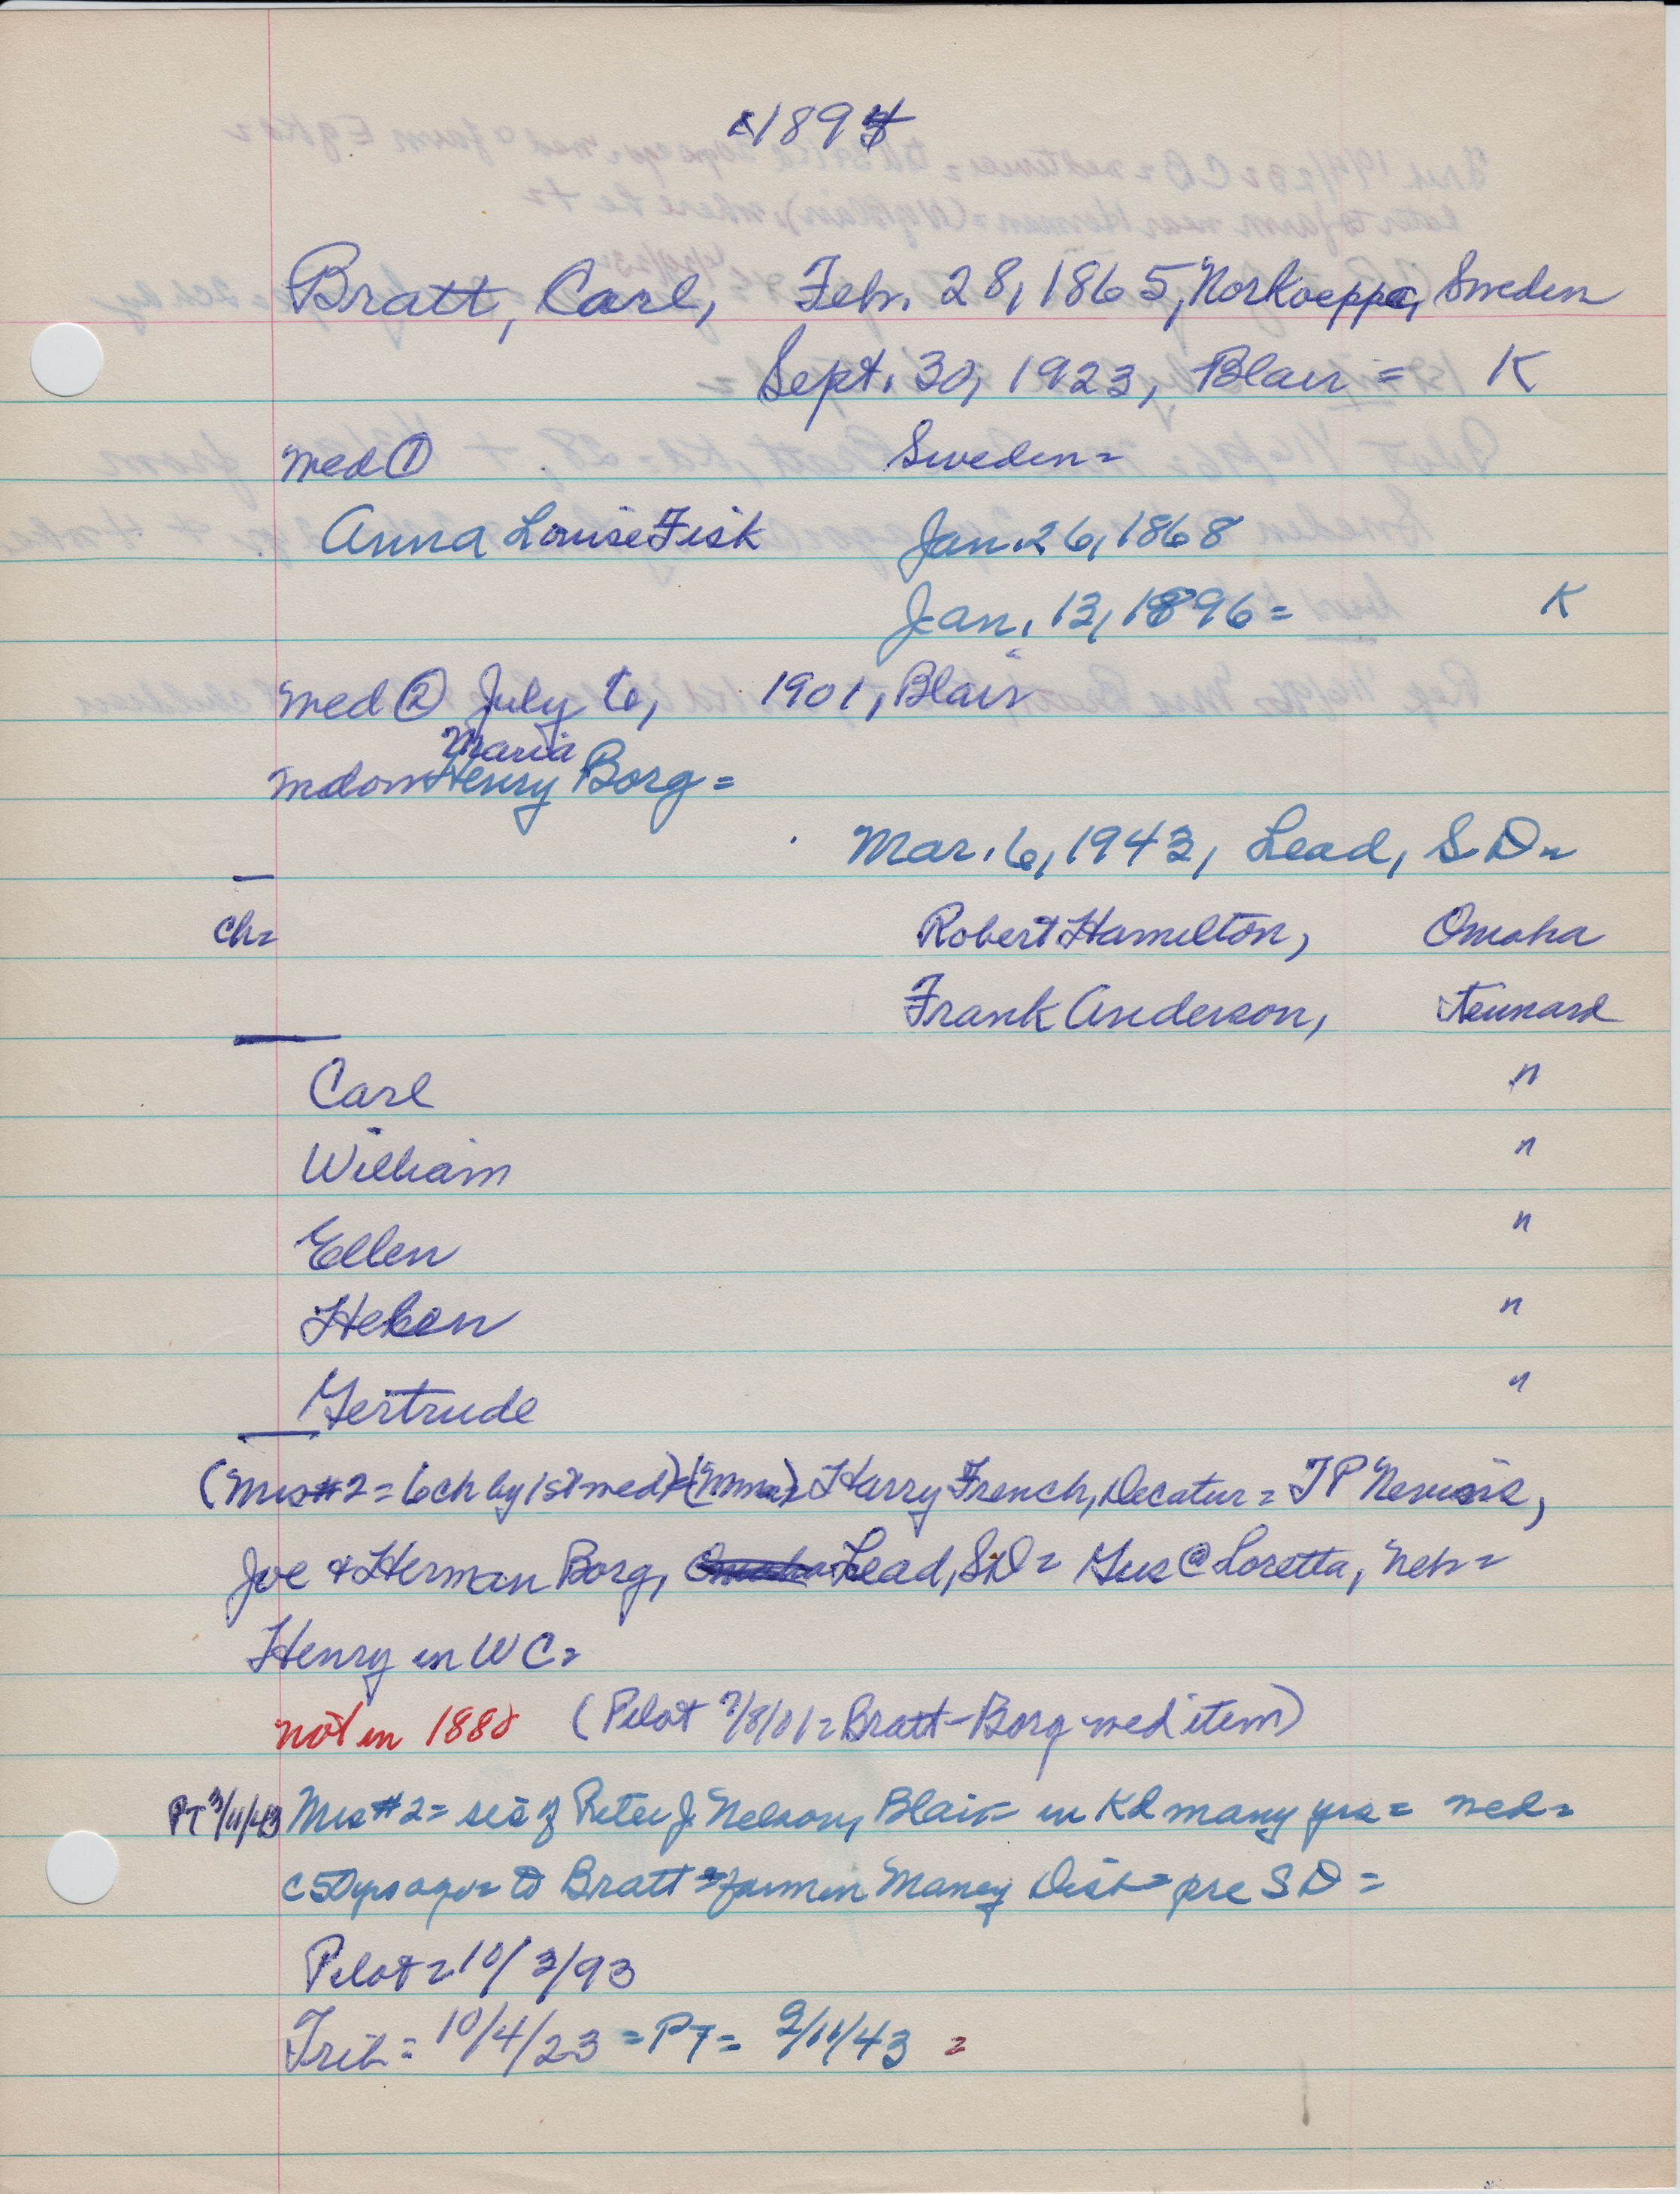 c1894
Bratt, Carl, Feb. 28, 1865, Norkoeppe, Sweden
Sept. 30, 1923, Blair = K
med ① Sweden =
Anna Louise Fisk Jan. 26, 1868
Jan. 13, 1896 = K
med ② July 6, 1901, Blair
Maria
widow Henry Borg =
Mar. 6, 1943, Lead, SD =
ch = Robert Hamilton, Omaha
Frank Anderson, Kennard
Carl "
William "
Ellen "
Helen "
Gertrude "
(Mrs #2 = 6 ch by 1st med) = Harry French, Decatur = J P
Joe & Herman Borg, Lead, SD = Gus @ Loretta, Neb =
Henry in WC =
not in 1880 (Pilot 7/8/01 = Bratt-Borg med item)
PT 3/11/43 Mrs #2 = sis of Peter J. Nelson, Blair = in Kd many yrs = med =
c 50 yrs ago = to Bratt = farm in Maney Dist = pre SD =
Pilot = 10/3/93
Trib = 10/4/23 = PT = 3/11/43 =